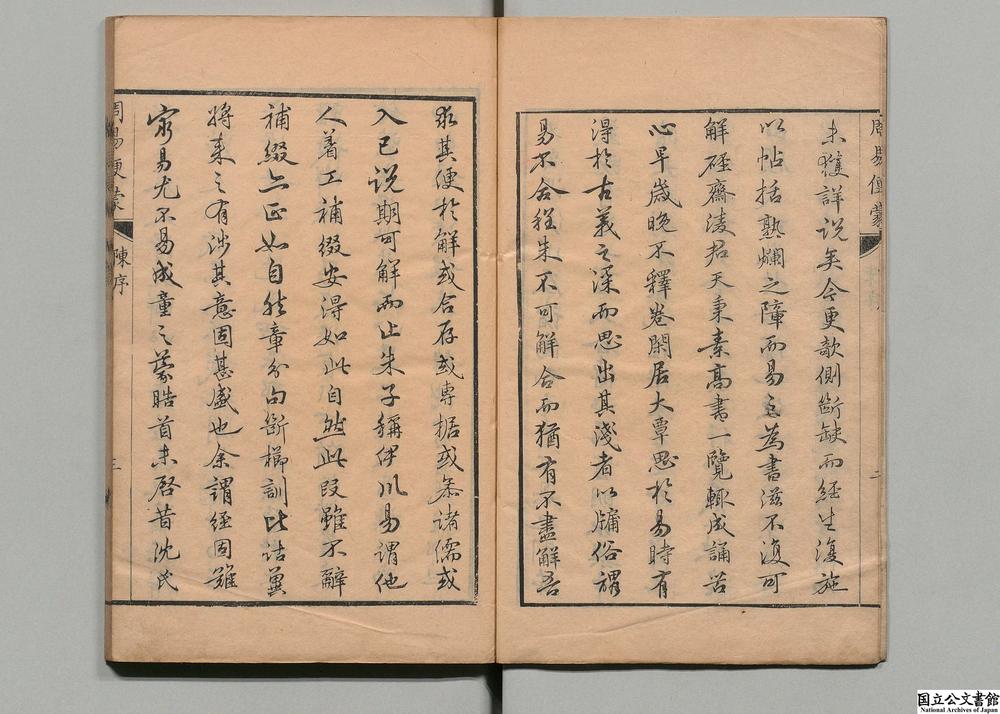 未獲詳說矣今更欹側斷缺而經生復施
以帖括熟爛之障而易之為書滋不復可
解碀齋淩君天秉素高書一覽輒成誦苦
心早歲晚不釋卷閑居大覃思於易時有
得於古義之深而思出其淺者以牖俗謂
易不合程朱不可解合而猶有不盡解吾
求其便於解或合存或專據或叅諸儒或
入已說期可解而止朱子稱伊川易謂他
人着工補綴安得如此自然此段雖不辭
補綴亦正如自然章分句斷櫛訓比詁冀
將來之有涉其意固甚盛也余謂經固難
窮易尤不易成童之蒙晧首未啓昔沈氏
周易便蒙
陳序
三
周易便蒙
二
国立公文書館
National Archives of Japan